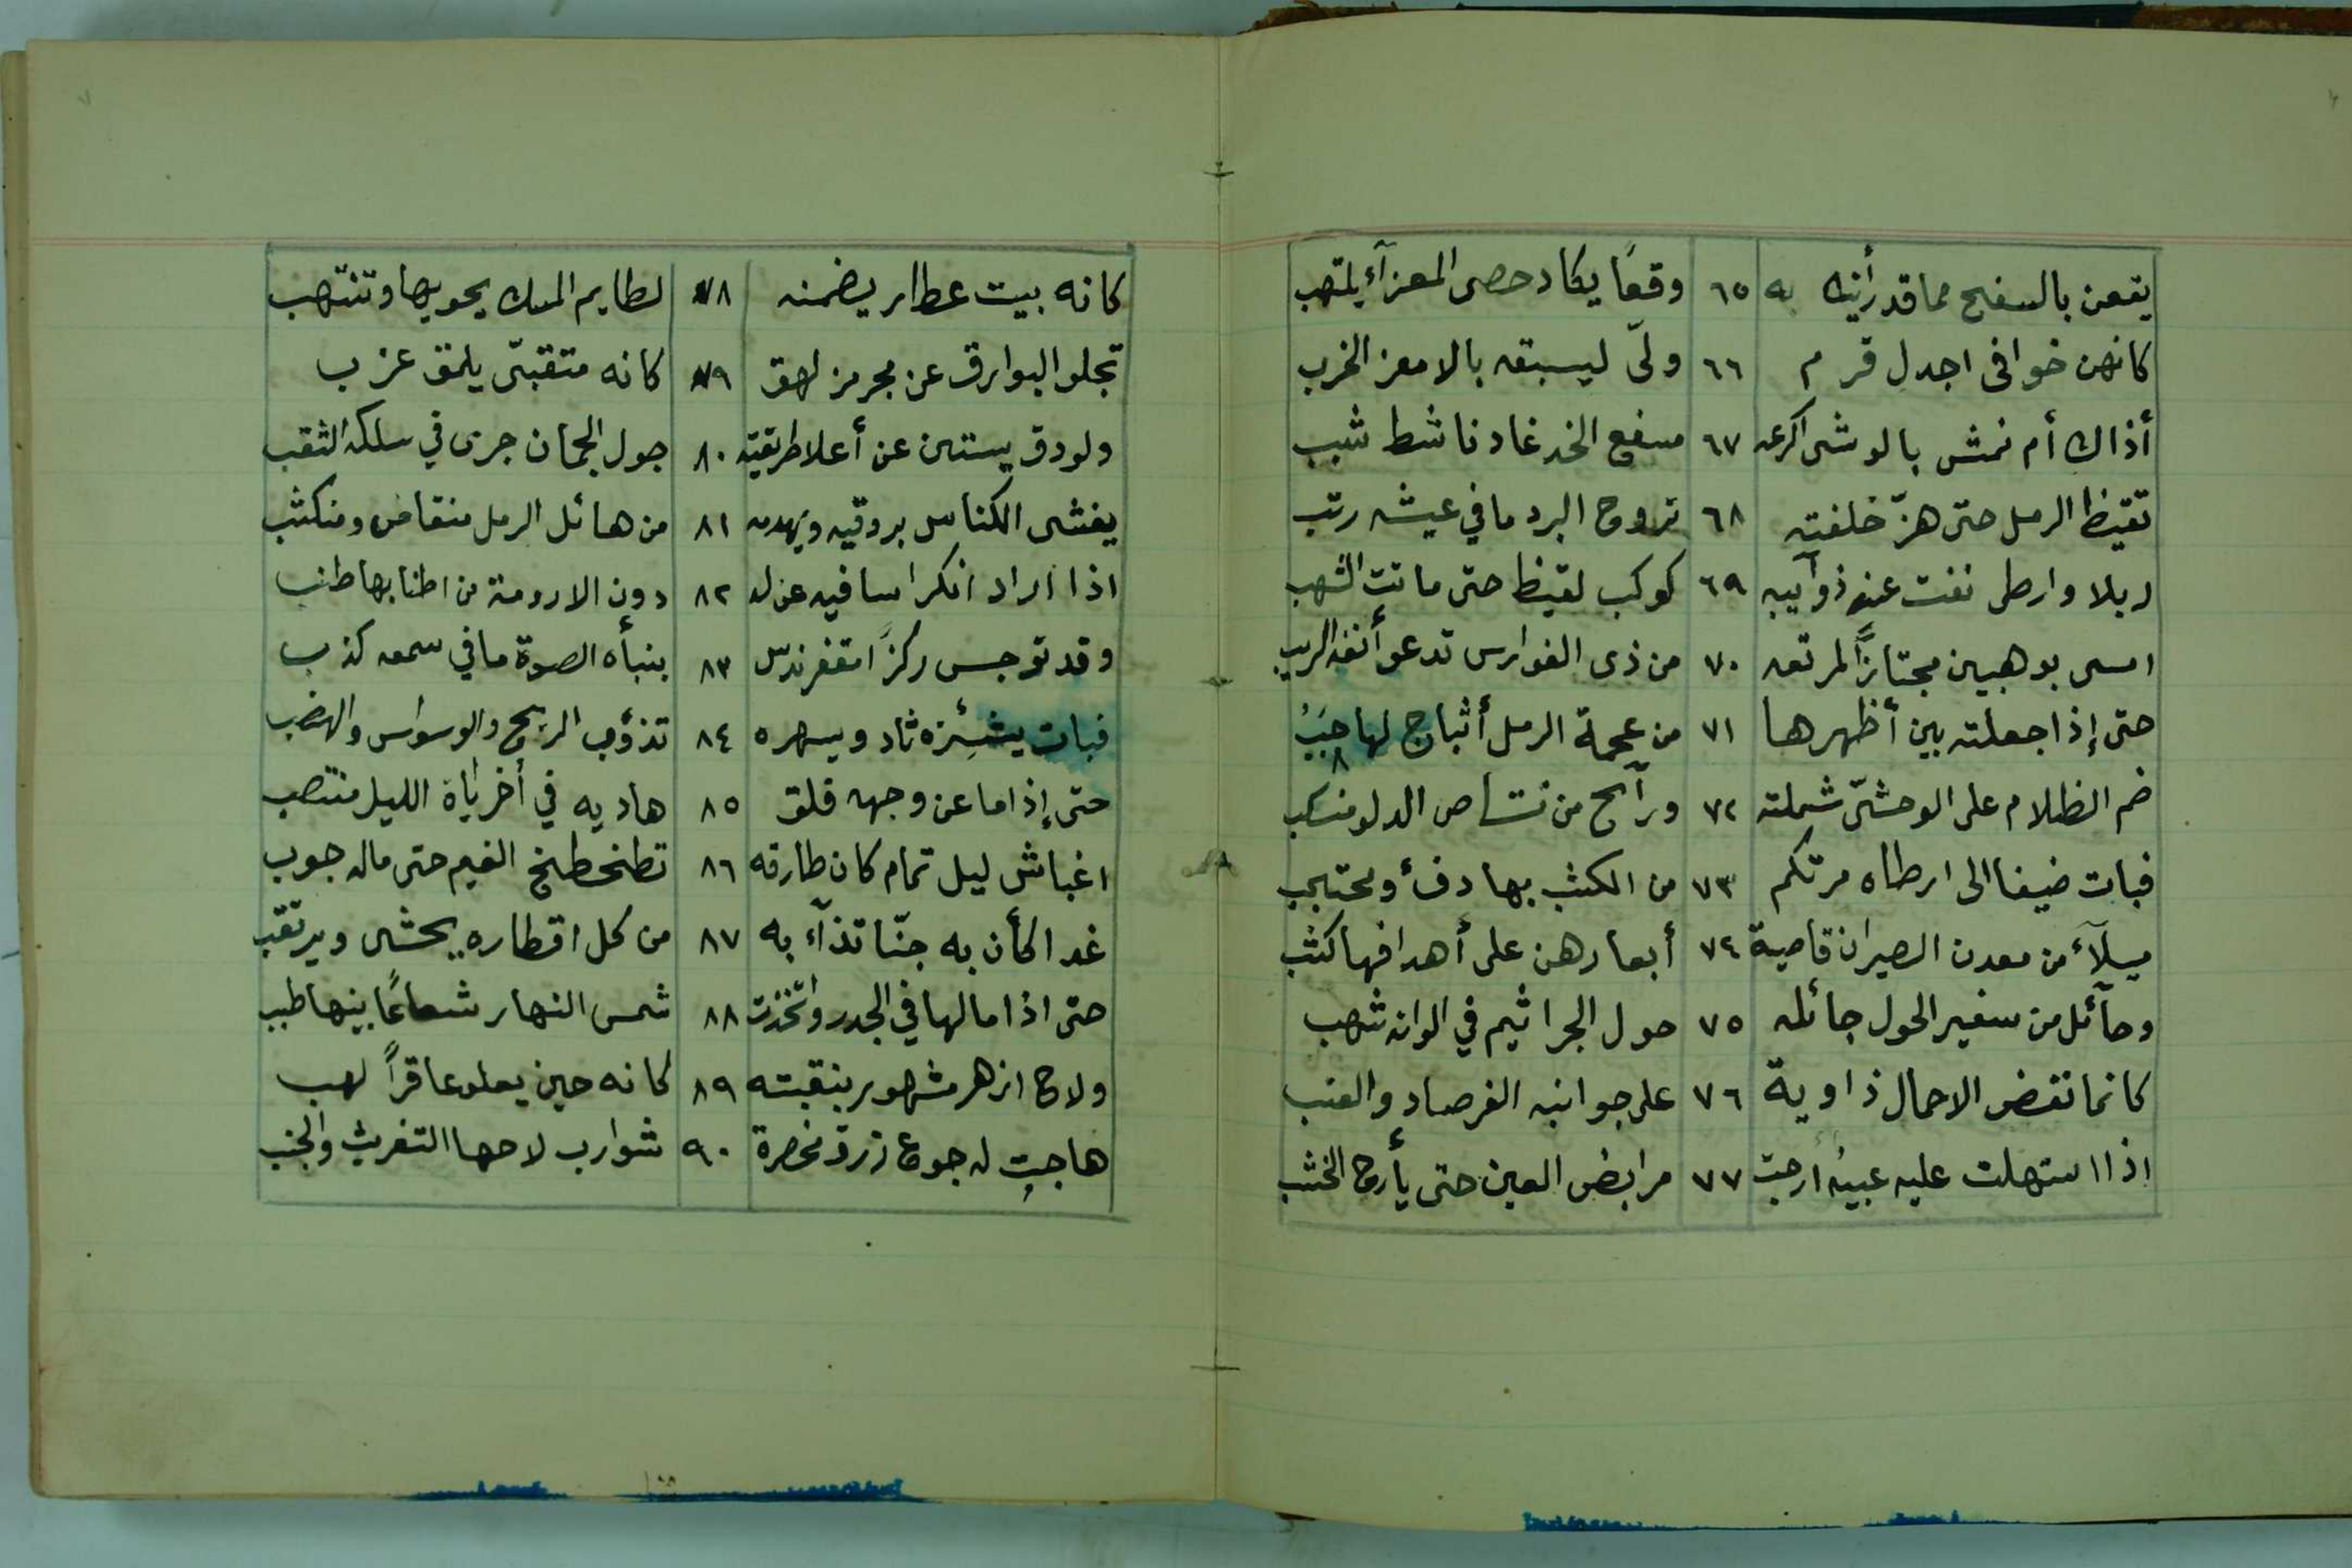 يقعن بالسفح مما قد رأينه به ٦٥ وقعًا يكاد حصى المعزآء يلتهب
كانهن خوافى اجدل قرم ٦٦ ولّى ليسبقه بالامعز الخرب
أذاك أم نمش بالوشى اكرعه ٦٧ مسفع الخد غاد ناشط شبب
تقيظ الرمل حتى هزّ خلفته ٦٨ تروح البرد ما في عيشه رتب
ربلا وارطى نفت عنه ذوآيبه ٦٩ كوكب لقيظ حتى ماتت الشهب
امسى بوهبين مجتازًا لمرتعه ٧٠ من ذى الفوارس تدعو أنفه الربب
حتى إذا جعلته بين أظهرها ٧١ من عجمة الرمل أثباج لها حببُ
٨
ضم الظلام على الوحشىّ شملته ٧٢ ورآيح من نشاص الدلو منسكب
فبات ضيفا الى ارطاه مرتكم ٧٣ من الكثب بها دفء ومحتجب
ميلآء من معدن الصيران قاصية ٧٤ أبعارهن على أهدافها كثب
وحآئل من سفير الحول جائله ٧٥ حول الجراثيم في الوانه شهب
كانما نفض الاحمال ذاوية ٧٦ على جوانبه الفرصاد والعنب
اذا استهلت عليه غبيه أرجت ٧٧ مرابض العين حتى يأرج الخشب
كانه بيت عطار يضمنه ٧٨ لطايم المسك يحويها وتنتهب
تجلو البوارق عن مجرمز لهق ٧٩ كانه متقبّى يلمق عزب
ولودق يستن عن أعلا طريقته ٨٠ جول الجمان جرى في سلكه الثقب
يغشى الكناس بروقيه ويهدمه ٨١ من هائل الرمل منقاض ومنكثب
اذا اراد انكراسا فيه عن له ٨٢ دون الارومة من اطنابها طنب
وقد توجس ركزًا مقفر ندس ٨٣ بنبأه الصوة ما في سمعه كذب
فبات يشئزه ثاد ويسهره ٨٤ تذؤب الريح والوسواس والهضب
حتى إذا ما عن وجهه قلق ٨٥ هاديه في أخرياة الليل منتصب
اغباش ليل تمام كان طارقه ٨٦ تطخطخ الغيم حتى ماله جوب
غدا كأن به جنّا تذآء به ٨٧ من كل اقطاره يخشى ويرتقب
حتى اذا ما لها في الجدر واتخذت ٨٨ شمس النهار شعاعًا بينها طبب
ولاح ازهر مشهور بنقبته ٨٩ كانه حين يعلو عاقرًا لهب
هاجت له جوع زرق مخصرة ٩٠ شوارب لاحها التغريث والجنب